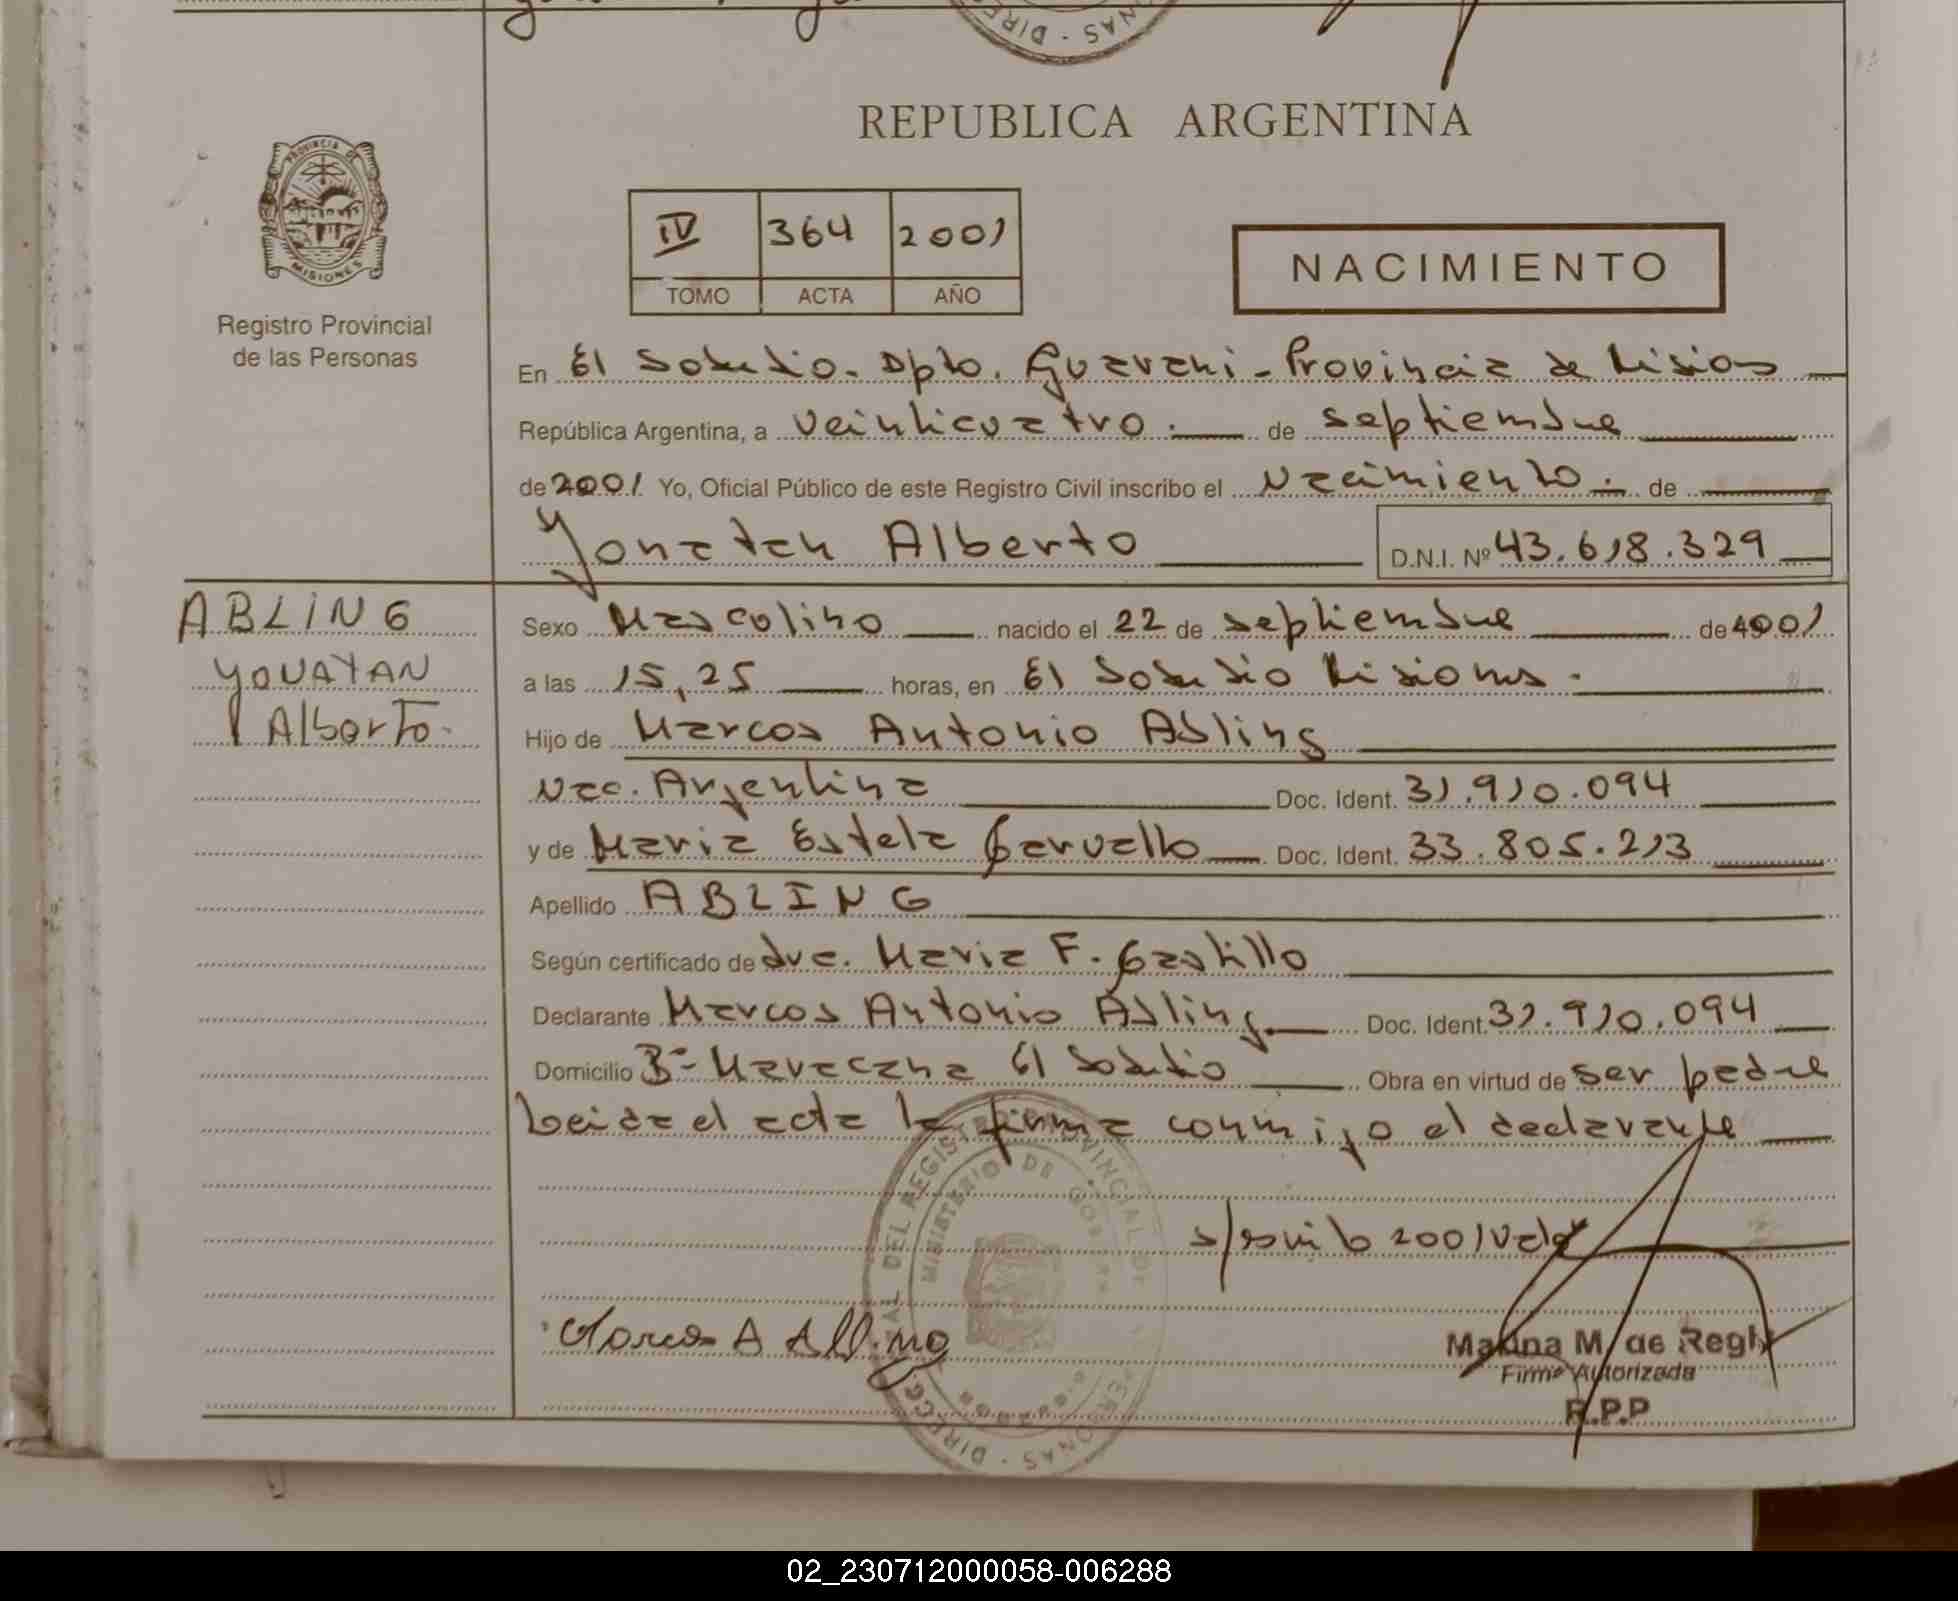 REPUBLICA ARGENTINA
PROVINCIA DE
MISIONES
Registro Provincial
de las Personas
IV 364 2001
TOMO ACTA AÑO
NACIMIENTO
En El Soberbio. Dpto. Guarani - Provincia de Misiones
República Argentina, a veinticuatro. de septiembre
de 2001. Yo, Oficial Público de este Registro Civil inscribo el Nacimiento. de
Yonatan Alberto D.N.I. Nº 43.618.329
ABLING
YONATAN
Alberto.
Sexo Masculino nacido el 22 de septiembre de 2001
a las 15,25 horas, en El Soberbio Misiones.
Hijo de Marcos Antonio Abling
Nac. Argentina Doc. Ident. 31.910.094
y de Maria Estela Carvallo Doc. Ident. 33.805.213
Apellido ABLING
Según certificado de dra. Maria F. Castillo
Declarante Marcos Antonio Abling Doc. Ident. 31.910.094
Domicilio Bº Maracana El Soberbio Obra en virtud de ser padre
Leida el acta la firma conmigo el declarante
s/ 2001 Vale
Marcos A Abling
Marina M. de Regly
Firma Autorizada
R.P.P
02_230712000058-006288